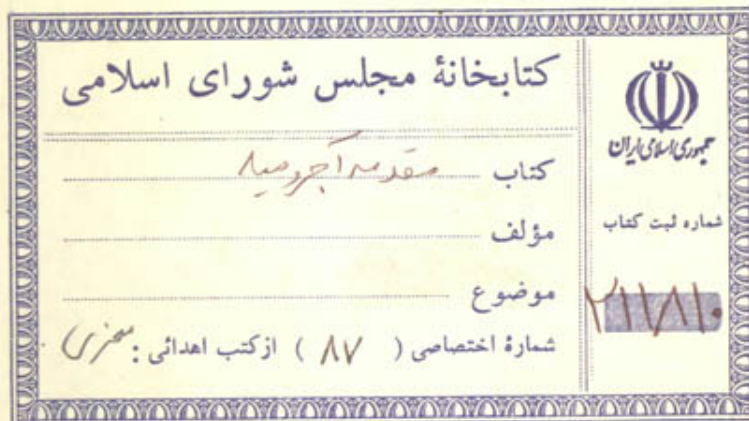 کتابخانهٔ مجلس شورای اسلامی
کتاب مقدمه آجرومیه
مؤلف
موضوع
شمارهٔ اختصاصی ( ۸۷ ) از کتب اهدائی :
جمهوری اسلامی ایران
شماره ثبت کتاب
۲۱۱۸۱۰